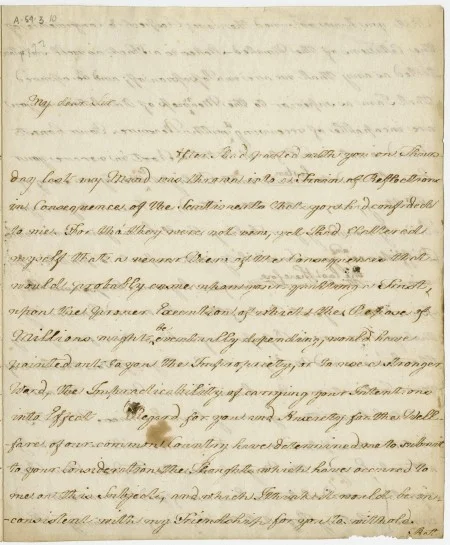 A-69-3
My dear Sir
After I had parted with you on Thurs
day last my Mind was thrown into a Train of Reflections
in Consequence of the Sentiments that you had confided
to me. For tho' they were not new, yet I had flattered
myself that a nearer View of the Consequences that
would probably ensue upon your quitting a Trust,
upon the proper Execution of which the Repose of
Millions might be eventually depending, would have
pointed out to you the Impropriety, or to use a stronger
Word, the Impracticability of carrying your Intentions
into Effect. Regard for you and Anxiety for the Well-
-fare of our common Country have determined me to submit
to your Consideration the Thoughts which have occurred to
me on this Subject, and which I think it would be in-
-consistent with my Friendship for you to withold.